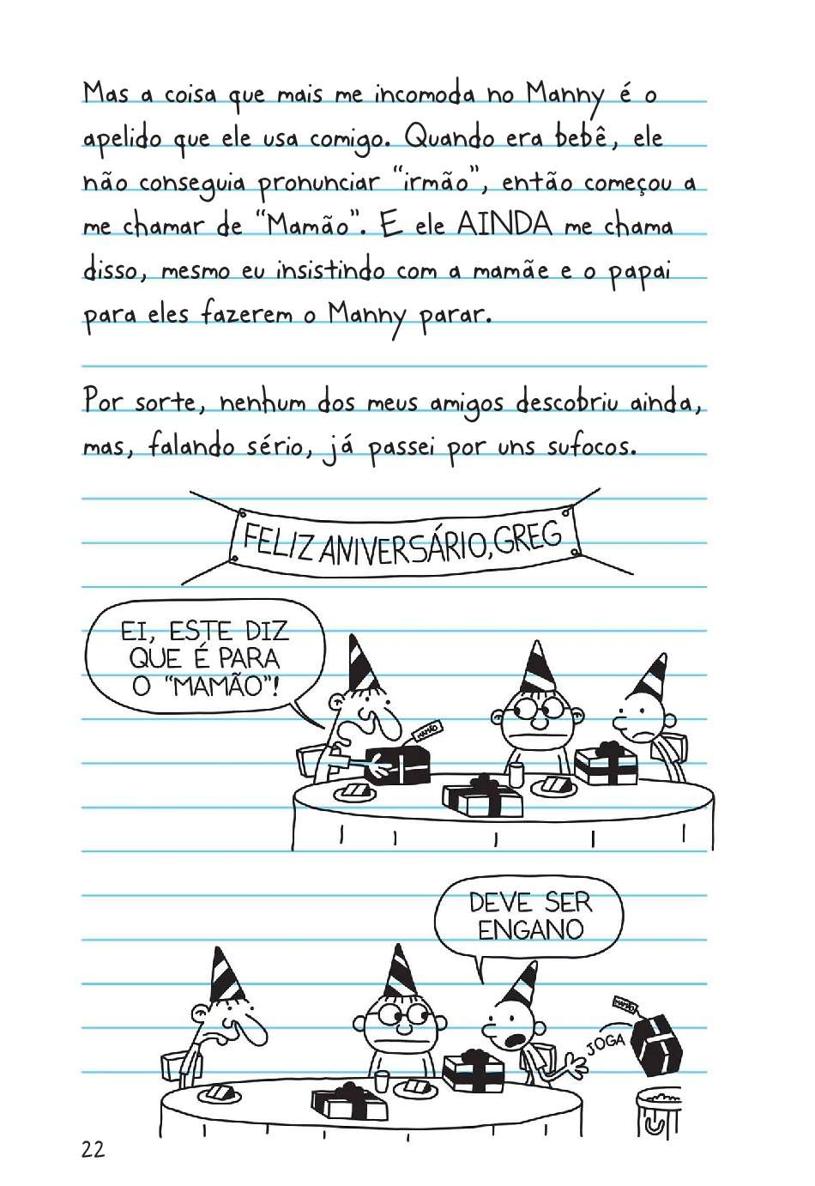 Mas a coisa que mais me incomoda no Manny é o
apelido que ele usa comigo. Quando era bebê, ele
não conseguia pronunciar “irmão”, então começou a
me chamar de “Mamão”. E ele AINDA me chama
disso, mesmo eu insistindo com a mamãe e o papai
para eles fazerem o Manny parar.
Por sorte, nenhum dos meus amigos descobriu ainda,
mas, falando sério, já passei por uns sufocos.
FELIZ ANIVERSÁRIO, GREG
EI, ESTE DIZ
QUE É PARA
O “MAMÃO”!
MAMÃO
DEVE SER
ENGANO
MAMÃO
JOGA
22